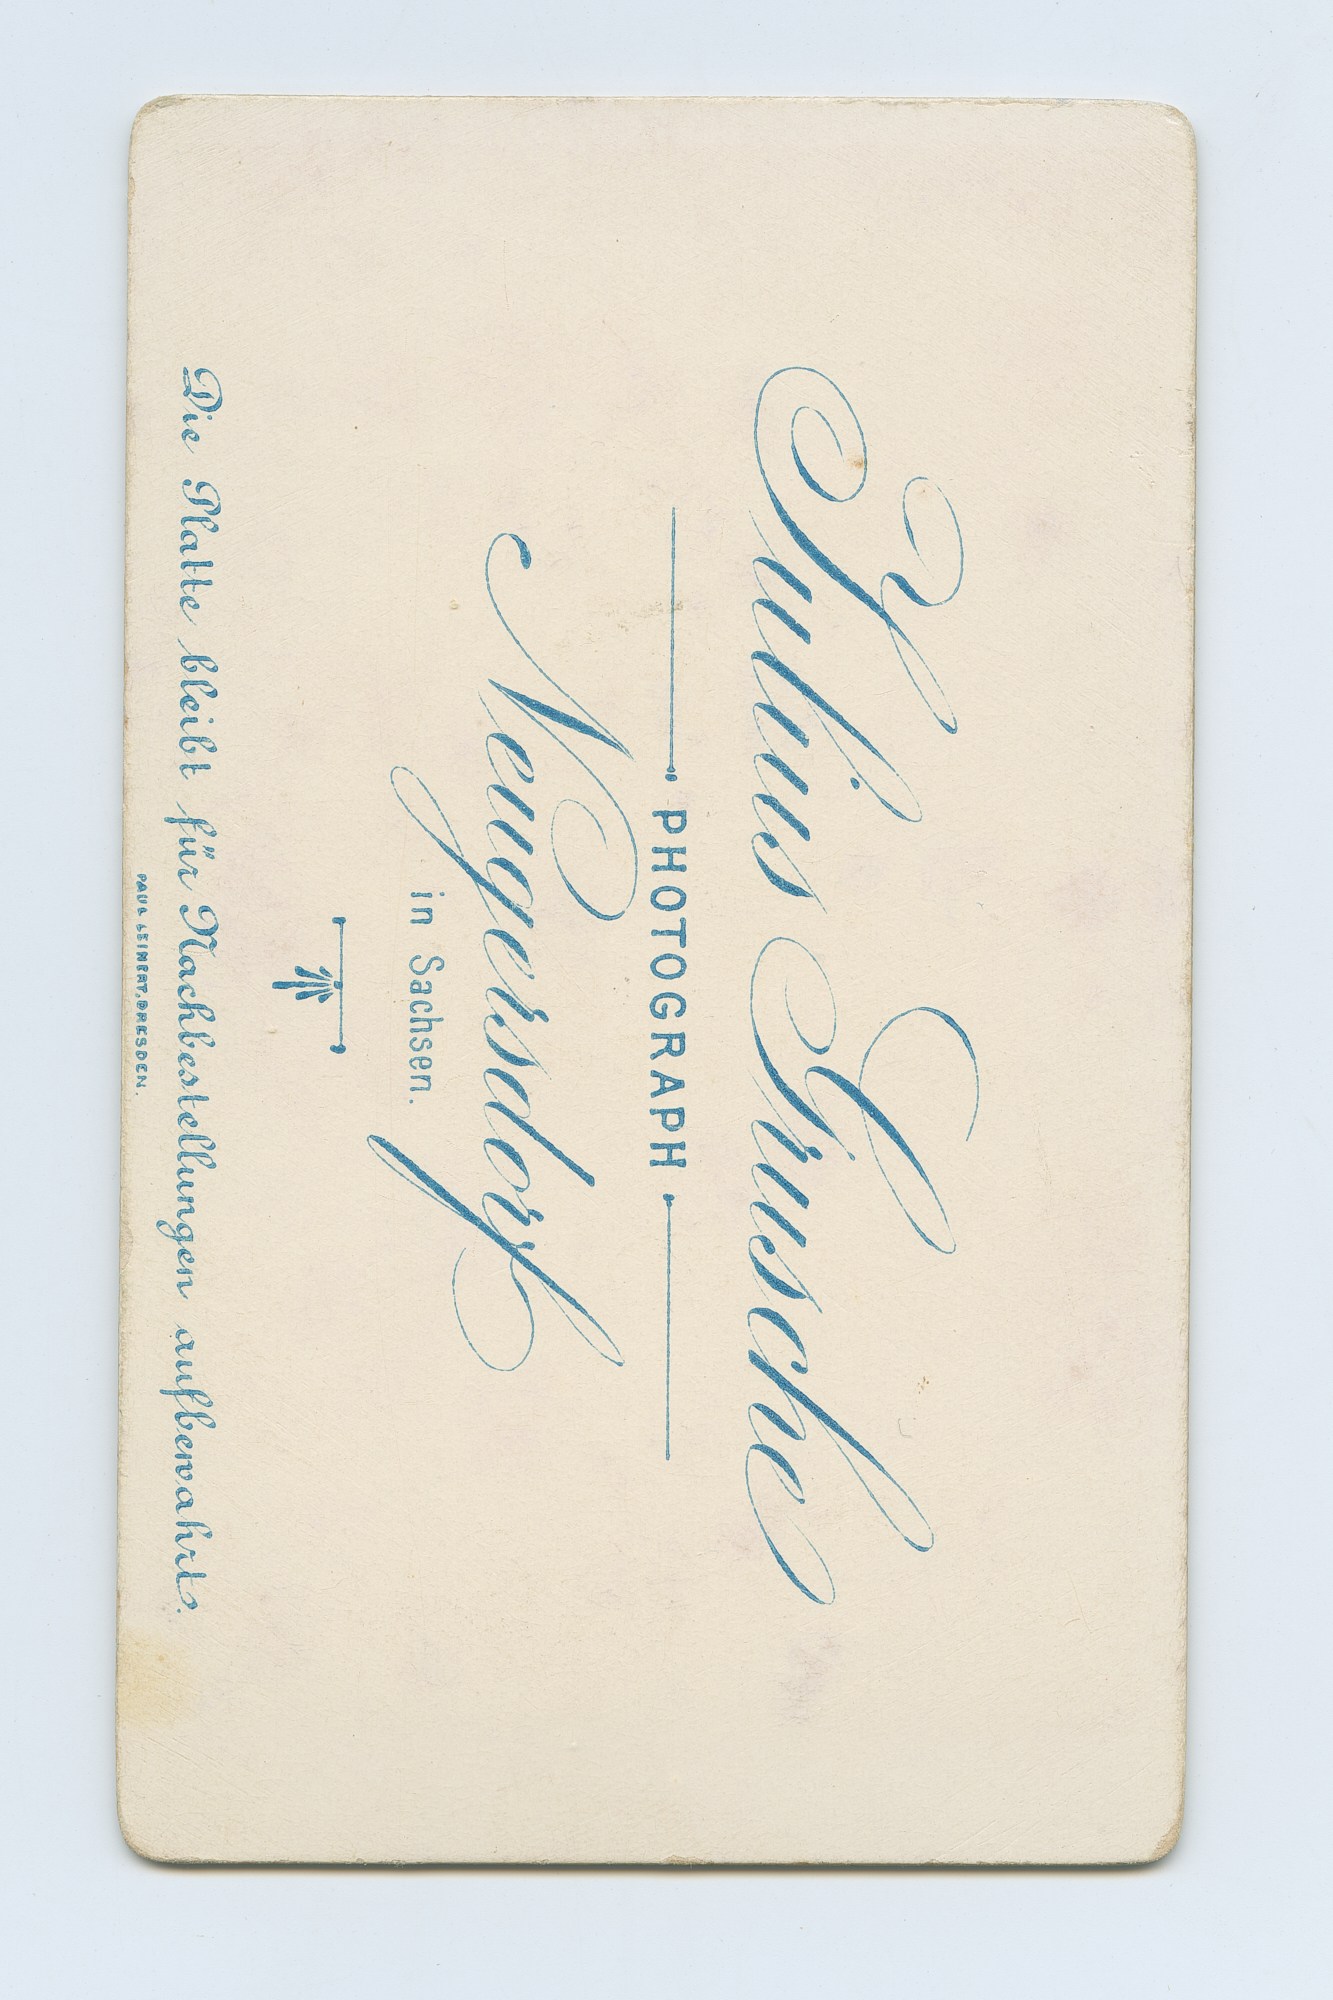 Julius Grusche
PHOTOGRAPH
Neugersdorf
in Sachsen.
Die Platte bleibt für Nachbestellungen aufbewahrt.
PAUL LEINERT, DRESDEN.